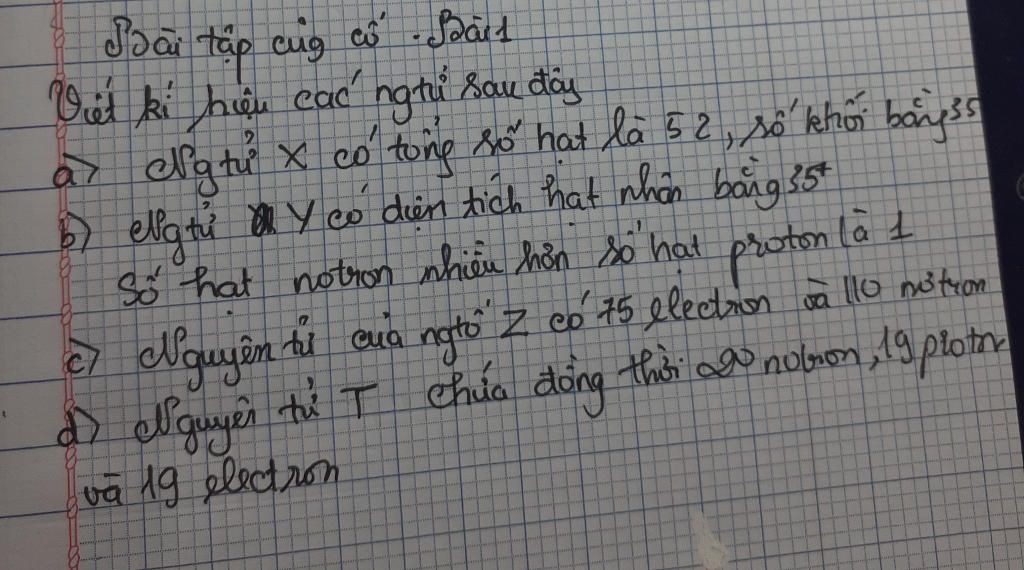 Bài tập củg cố. Bài 1
Viết kí hiệu các ngtử sau đây
a) Ngtử X có tổng số hạt là 52, số khối bằng 35
b) Ngtử Y có diện tích hạt nhân bằng 35+
Số hạt notron nhiều hơn số hạt proton là 1
c) Nguyên tử của ngtố Z có 75 electron và 110 nơtron
d) Nguyên tử T chứa đồng thời 20 notron, 19 proton
và 19 electron